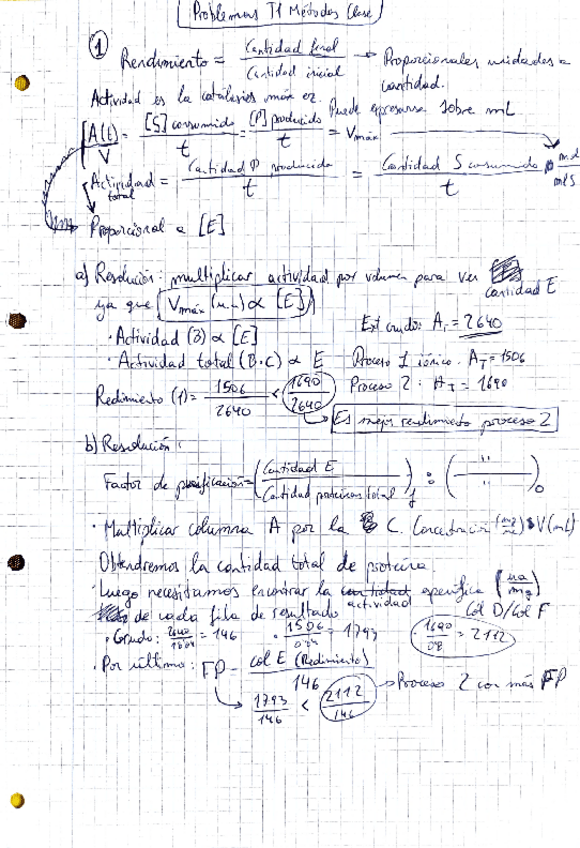 Problemas T1 Métodos Clase
① Rendimiento = Cantidad final / Cantidad inicial → Proporcionales unidades a cantidad.
Actividad es la catálisis máx ez. Puede expresarse sobre mL
[A(t)]/V = [S] consumido / t = [P] producido / t = Vmáx
Actividad total = Cantidad P producido / t = Cantidad S consumido / t
Proporcional a [E]
a) Resolución: multiplicar actividad por volumen para ver cantidad E
ya que Vmáx (u.a) ∝ [E]
· Actividad (B) ∝ [E] Ext crudo: A_T = 2640
· Actividad total (B·C) ∝ E Proceso 1 iónico: A_T = 1506
Redimiento (1) = 1506/2640 < 1690/2640 Proceso 2: A_T = 1690
Es mejor rendimiento proceso 2
b) Resolución:
Factor de purificación = (Cantidad E / Cantidad proteínas total)f : ( " / " )o
· Multiplicar columna A por la C. Concentración (mg/mL) · V(mL)
Obtendremos la cantidad total de proteína.
· Luego necesitamos encontrar la actividad específica (ua/mg)
de cada fila de resultado Col D/Col F
· Crudo: 2640 = 146 · 1506 = 1793 · 1690/0'8 = 2112
· Por último: FP = col E (Redimiento) / 146
1793/146 < 2112/146 → Proceso 2 con más FP